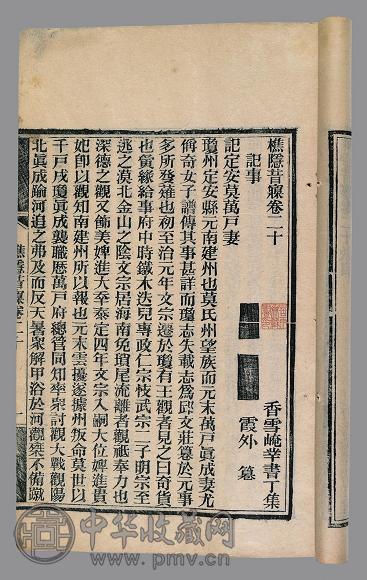 樵隱昔寱卷二十
香雪崦莘書丁集
記事
霞外 篹
記定安莫萬戶妻
瓊州定安縣元南建州也莫氏州望族而元末萬戶眞成妻尤
傳奇女子譜傳其事甚詳而瓊志失載志爲邱文莊篹於元事
多所發蘀也初至治元年文宗遷於瓊有王觀者見之曰奇貨
也夤緣給事府中時鐵木迭兒專政仁宗忮武宗二子明宗至
逃之漠北金山之陰文宗居海南免瑣尾流離者觀祗奉力也
深德之觀又飾美婢進大卒泰定四年文宗入嗣大位婢進貴
妃卽以觀知南建州所以報也元末雲擾遂據州叛命莫世以
千戶戍瓊眞成襲職歷萬戶府總管同知率衆討觀大戰觀陽
北眞成踰河追之弗及而反天暑衆解甲浴於河觀槩不備躐
樵隱昔寱卷二十
一
中华收藏网
www.pmv.cn